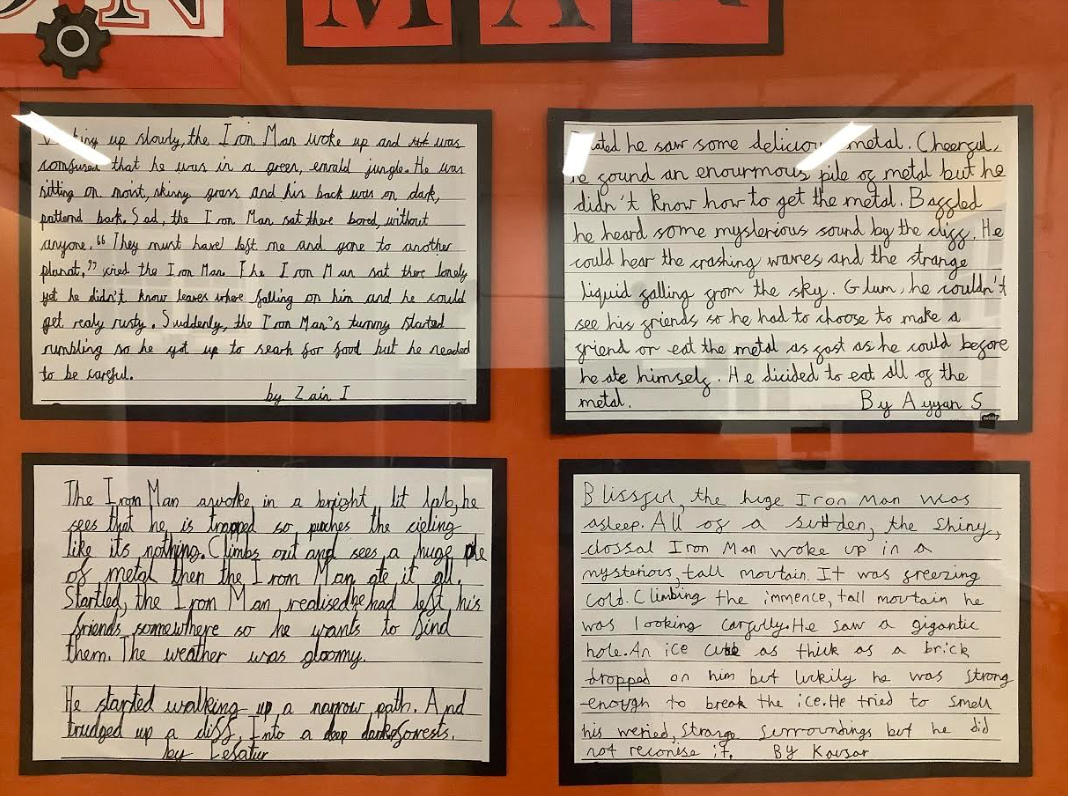 ON
MAN
up slowly, the Iron Man woke up and was
confused that he was in a green, emrald jungle. He was
sitting on moist, skinny grass and his back was on dark,
patternd bark. Sad, the Iron Man sat there bored, without
anyone. "They must have left me and gone to another
planat," cried the Iron Man. The Iron Man sat there lonely
yet he didn't know leaves where falling on him and he could
get realy rusty. Suddenly, the Iron Man's tummy started
rumbling so he got up to searh for food but he needed
to be careful.
by Zain I
he saw some delicious metal. Cheerful,
he found an enourmous pile of metal but he
didn't know how to get the metal. Baffled
he heard some mysterious sound by the cliff. He
could hear the crashing waves and the strange
liquid falling from the sky. Glum, he couldn't
see his friends so he had to choose to make a
friend or eat the metal as fast as he could before
he ate himself. He dicided to eat all of the
metal.
By Ayyan S
The Iron Man awoke in a bright, lit lab, he
sees that he is trapped so puches the cieling
like its nothing. Climbs out and sees a huge pile
of metal then the Iron Man ate it all.
Startled, the Iron Man, realised he had left his
friends somewhere so he wants to find
them. The weather was gloomy.
He started walking up a narrow path. And
trudged up a cliff, Into a deep dark forests.
by Lesatur
Blissful, the huge Iron Man was
asleep. All of a sudden, the shiny,
clossal Iron Man woke up in a
mysterious, tall mountain. It was freezing
cold. Climbing the immence, tall mountain he
was looking carfully. He saw a gigantic
hole. An ice cube as thick as a brick
dropped on him but luckily he was strong
enough to break the ice. He tried to smell
his weried, strange surroundings but he did
not reconise it. By Kawsar